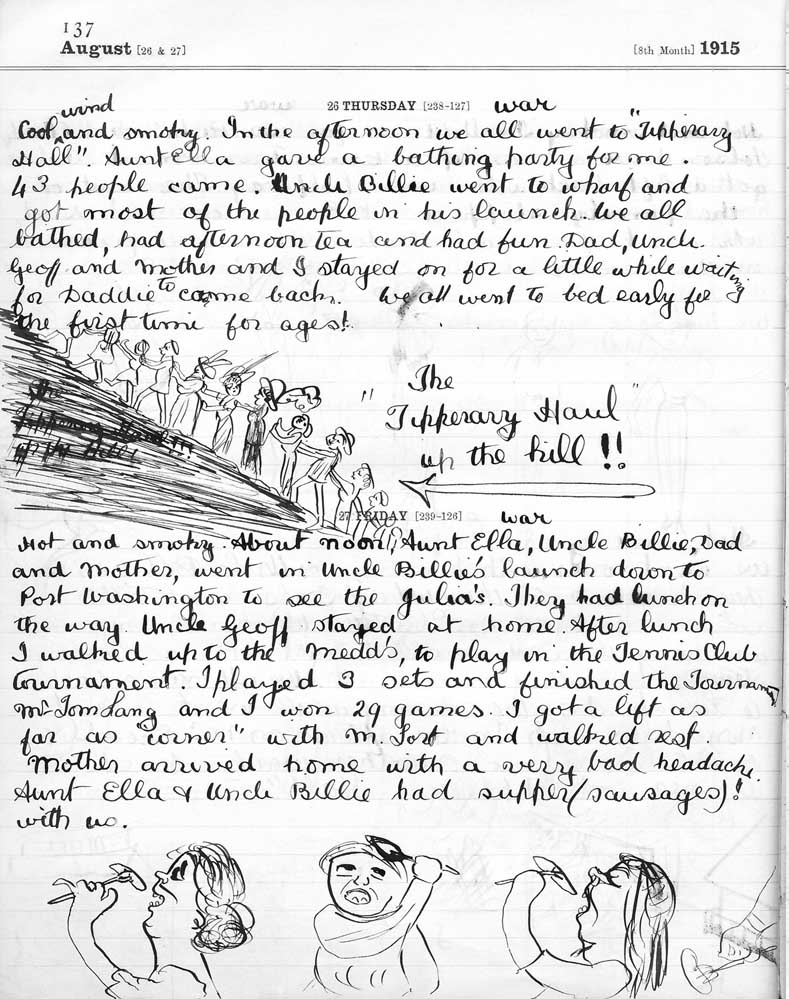 137
August [26 & 27] [8th Month] 1915
26 THURSDAY [238-127] war
wind
Cool ^ and smoky. In the afternoon we all went to "Tipperary
Hall". Aunt Ella gave a bathing party for me.
43 people came. Uncle Billie went to wharf and
got most of the people in his launch. We all
bathed, had afternoon tea and had fun. Dad, Uncle
Geoff and Mother and I stayed on for a little while waiting
for Daddie to come back. We all went to bed early for
the first time for ages!
The
"Tipperary Haul"
up the hill !!
27 FRIDAY [239-126] war
Hot and smoky. About noon, Aunt Ella, Uncle Billie, Dad
and Mother, went in Uncle Billie's launch down to
Port Washington to see the Julia's. They had lunch on
the way. Uncle Geoff stayed at home. After lunch
I walked up to the Medd's, to play in the Tennis Club
Tournament. I played 3 sets and finished the
Mr Tom Lang and I won 29 games. I got a lift as
far as "corner" with and walked rest.
Mother arrived home with a very bad headache.
Aunt Ella & Uncle Billie had supper (sausages)!
with us.